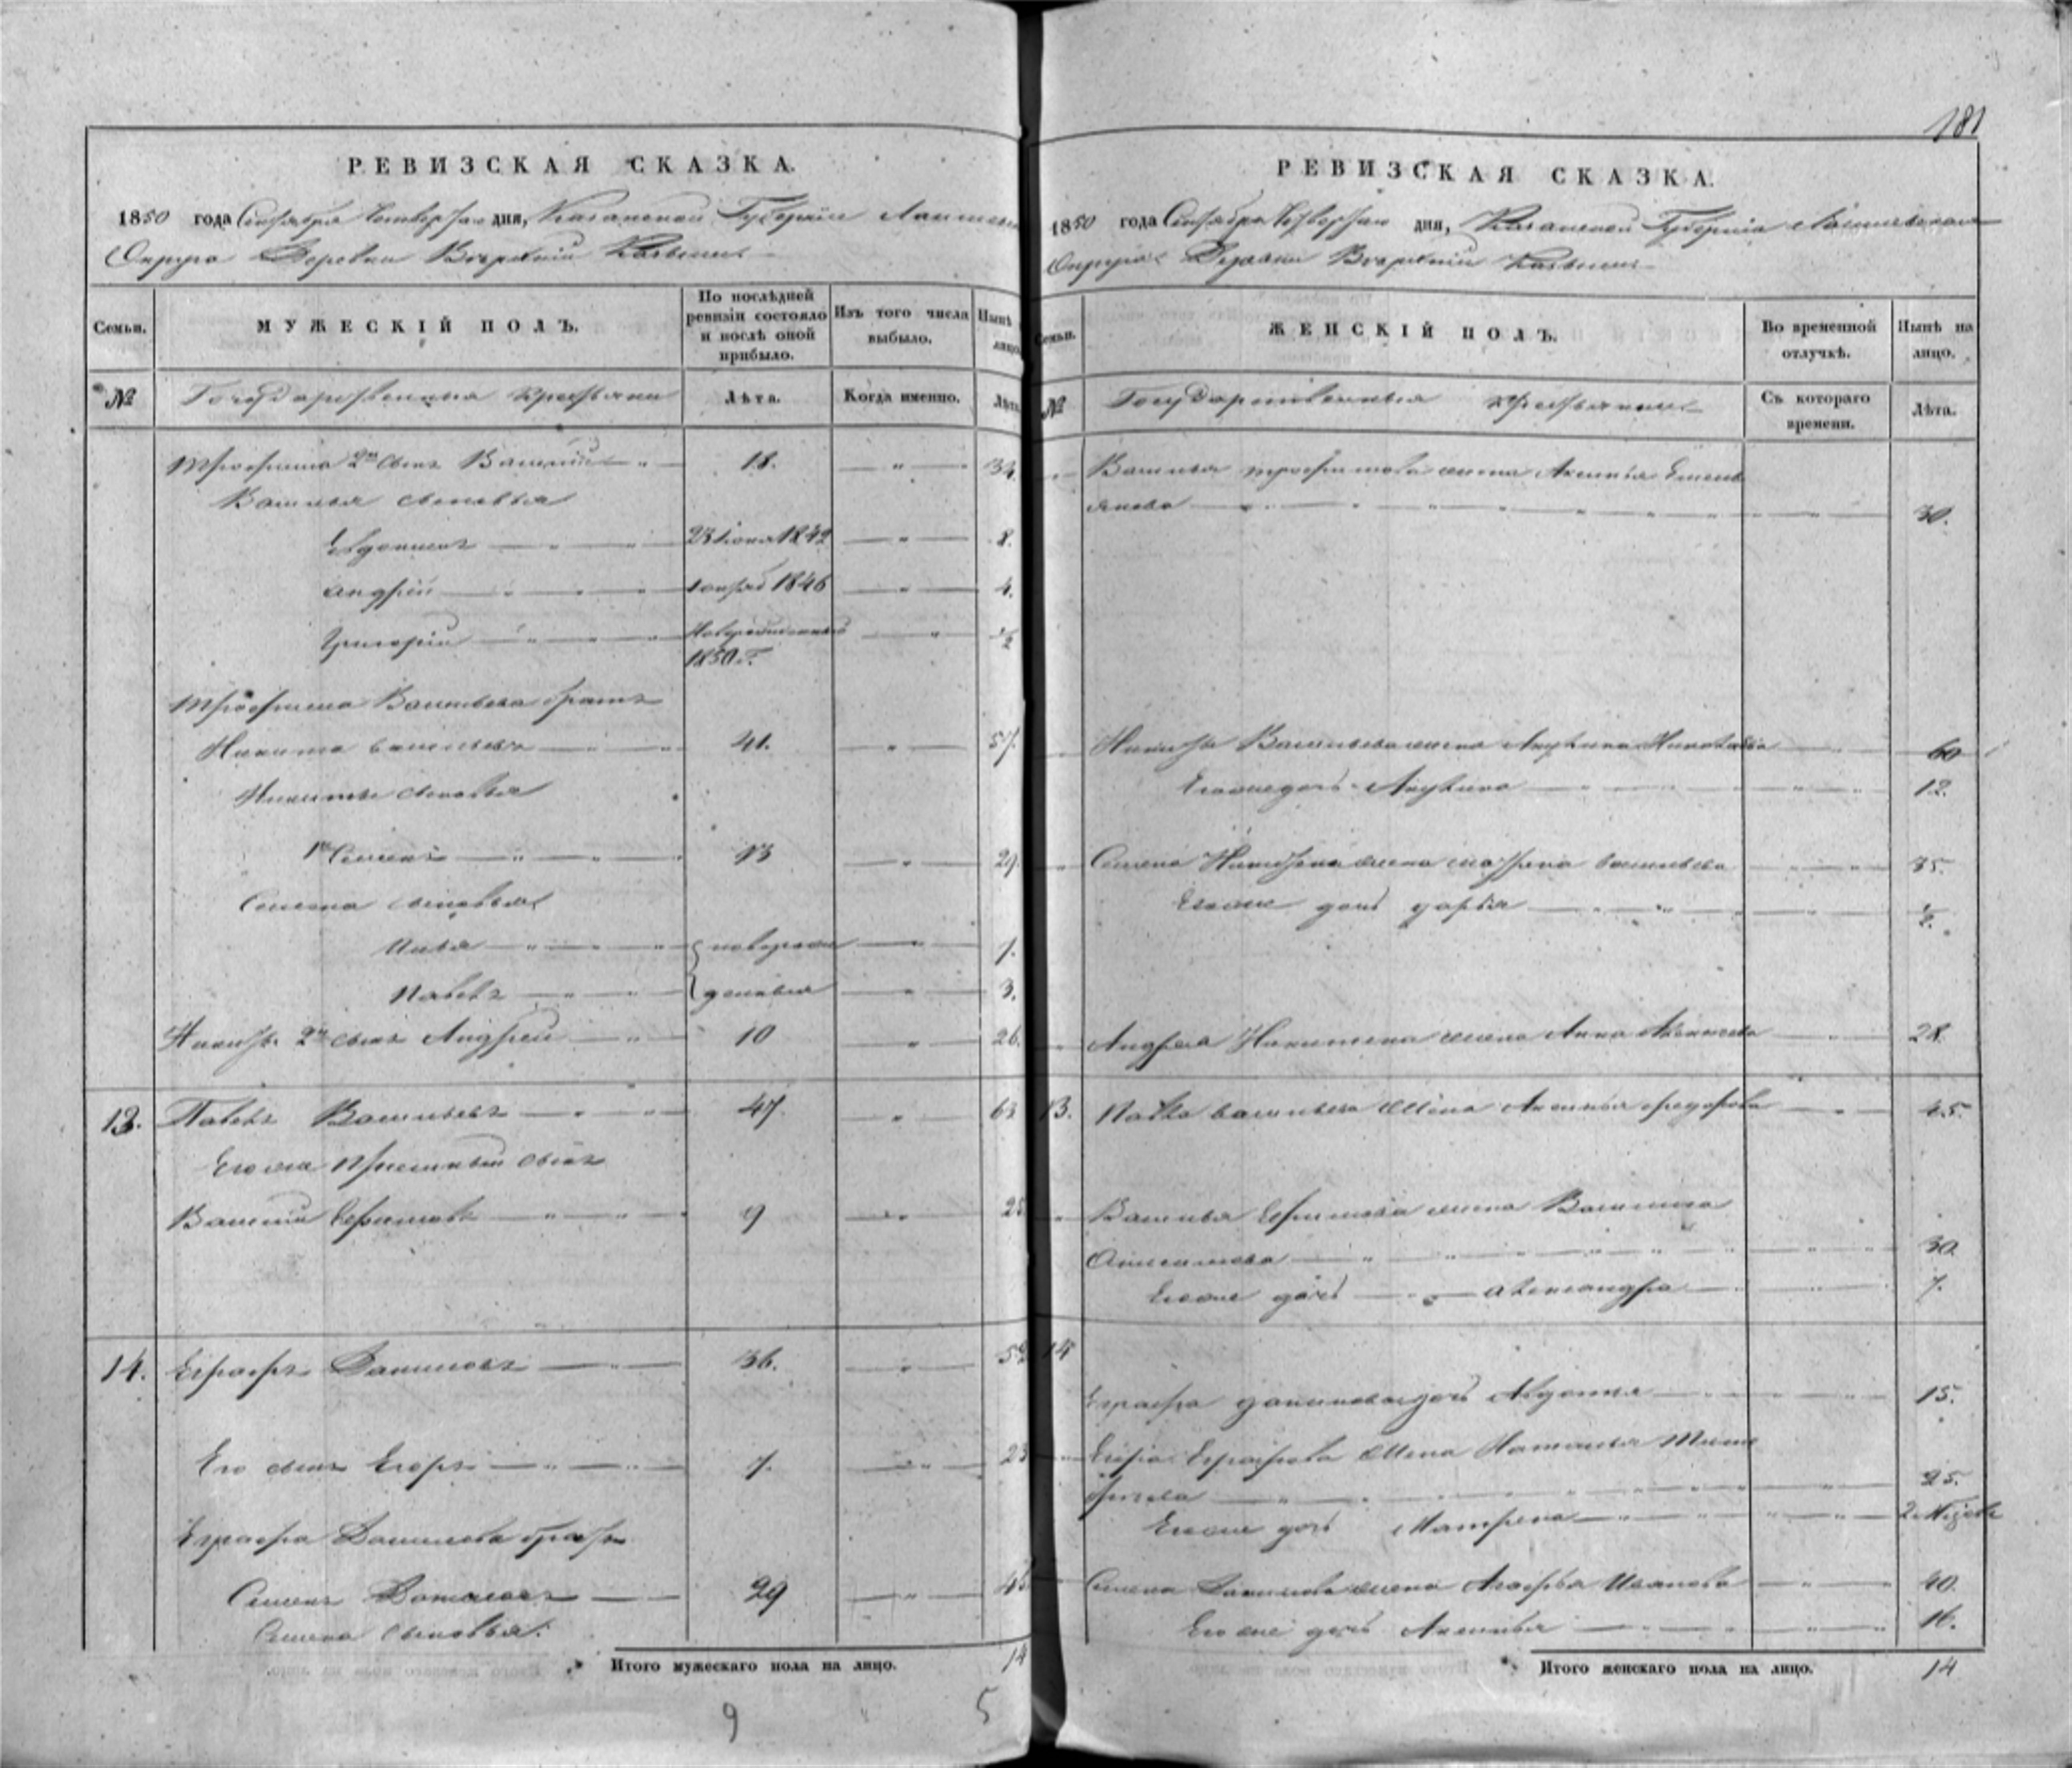 181
РЕВИЗСКАЯ СКАЗКА.
1850 года Сентября дня, Казанской Губерніи
Округа Деревни
Семьи. МУЖЕСКІЙ ПОЛЪ. По послѣдней ревизіи состояло и послѣ оной прибыло. Изъ того числа выбыло. Нынѣ лицо
№ Государственныя Крестьяни Лѣта. Когда именно. Лѣта
Трофима 2й сынъ Василій 18. 34
Василья сыновья
Евдокимъ 1842 8.
Андрей 1846 4.
Григорій Новорожденный ½
1850 г.
Трофима Васильева братъ
Никита Васильевъ 41. 57.
Никиты сыновья
1й Семенъ 13 29
Семена сыновья
Илья новорож 1.
Павелъ денныя 3.
Никиты 2й сынъ Андрей 10 26.
13. Павелъ Васильевъ 47 63
Его же приемный сынъ
Василій Ефимовъ 9 25
14. Евграфъ Даниловъ 36. 52
Его сынъ Егоръ 7. 23
Евграфа Данилова братъ
Семенъ Даниловъ 29 45
Семена сыновья:
Итого мужескаго пола на лицо. 14
9 5
РЕВИЗСКАЯ СКАЗКА.
1850 года Сентября дня, Казанской Губерніи
Округа Деревни
Семьи. ЖЕНСКІЙ ПОЛЪ. Во временной отлучкѣ. Нынѣ на лицо.
№ Государственныя Крестьянки Съ котораго времени. Лѣта.
Василья Трофимова жена Аксинья Емель
янова 30.
Никиты Васильева жена Акулина 60
Его же дочь Акулина 12.
Семена Никитина жена Матрена Васильева 35.
Его же дочь Дарья ½.
Андрея Никитина жена Анна 28.
13. Павла Васильева жена Аксинья Федорова 45.
Василья Ефимова жена Василиса
Анисимова 30
Его же дочь Александра 7.
14
Евграфа Данилова дочь Авдотья 15.
Егора Евграфова жена Наталья Тимо
феева 25.
Его же дочь Матрена
Семена Данилова жена Агафья Иванова 40.
Его же дочь Аксинья 16.
Итого женскаго пола на лицо. 14